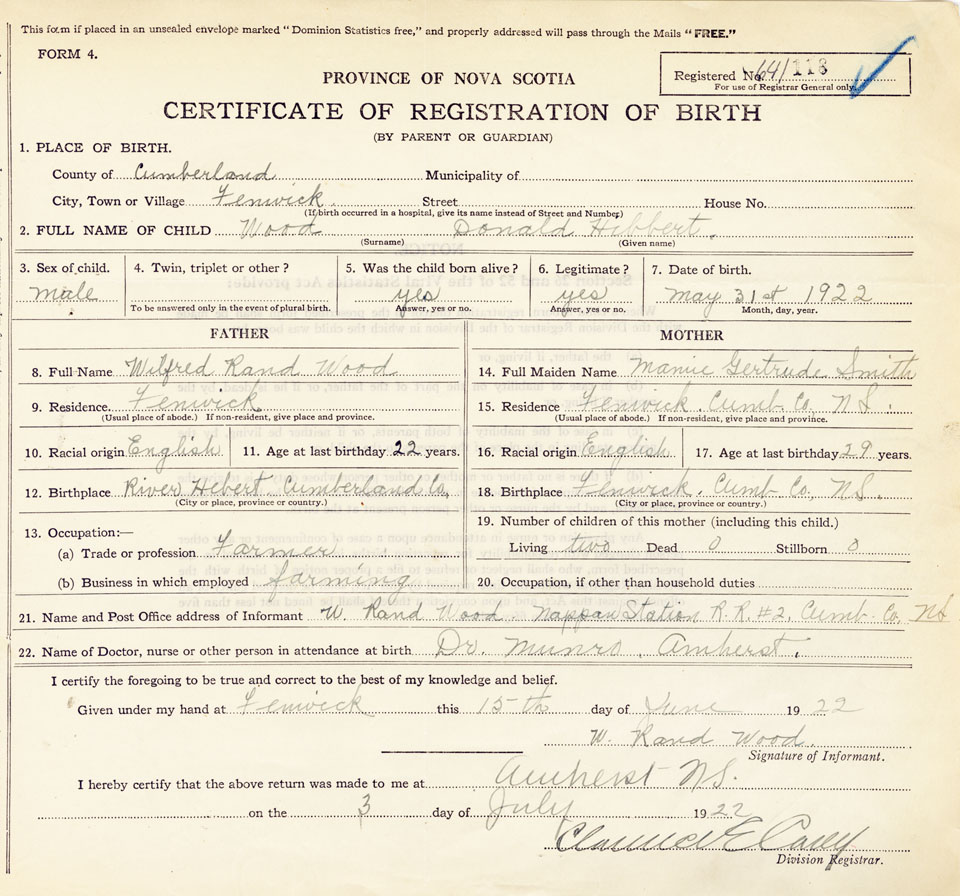 This form if placed in an unsealed envelope marked "Dominion Statistics free," and properly addressed will pass through the Mails "FREE."
FORM 4.
Registered No. 64/118
For use of Registrar General only.
PROVINCE OF NOVA SCOTIA
CERTIFICATE OF REGISTRATION OF BIRTH
(BY PARENT OR GUARDIAN)
1. PLACE OF BIRTH.
County of Cumberland Municipality of
City, Town or Village Fenwick Street House No.
(If birth occurred in a hospital, give its name instead of Street and Number)
2. FULL NAME OF CHILD Wood Donald Hibbert.
(Surname) (Given name)
3. Sex of child. 4. Twin, triplet or other? 5. Was the child born alive? 6. Legitimate? 7. Date of birth.
male yes yes May 31st 1922
To be answered only in the event of plural birth. Answer, yes or no. Answer, yes or no. Month, day, year.
FATHER MOTHER
8. Full Name Wilfred Rand Wood 14. Full Maiden Name Mamie Gertrude Smith
9. Residence. Fenwick 15. Residence Fenwick. Cumb. Co. NS.
(Usual place of abode.) If non-resident, give place and province. (Usual place of abode.) If non-resident, give place and province.
10. Racial origin English 11. Age at last birthday 22 years. 16. Racial origin English 17. Age at last birthday 29 years.
12. Birthplace River Hebert Cumberland Co, 18. Birthplace Fenwick. Cumb Co. NS.
(City or place, province or country.) (City or place, province or country.)
13. Occupation:— 19. Number of children of this mother (including this child.)
(a) Trade or profession Farmer Living two Dead 0 Stillborn 0
(b) Business in which employed farming 20. Occupation, if other than household duties
21. Name and Post Office address of Informant W. Rand Wood. Nappan Station R.R.#2, Cumb. Co. NS
22. Name of Doctor, nurse or other person in attendance at birth Dr. Munro, Amherst.
I certify the foregoing to be true and correct to the best of my knowledge and belief.
Given under my hand at Fenwick this 15th day of June 1922
W. Rand Wood.
Signature of Informant.
I hereby certify that the above return was made to me at Amherst NS.
on the 3 day of July 1922
Clarence E Casey
Division Registrar.